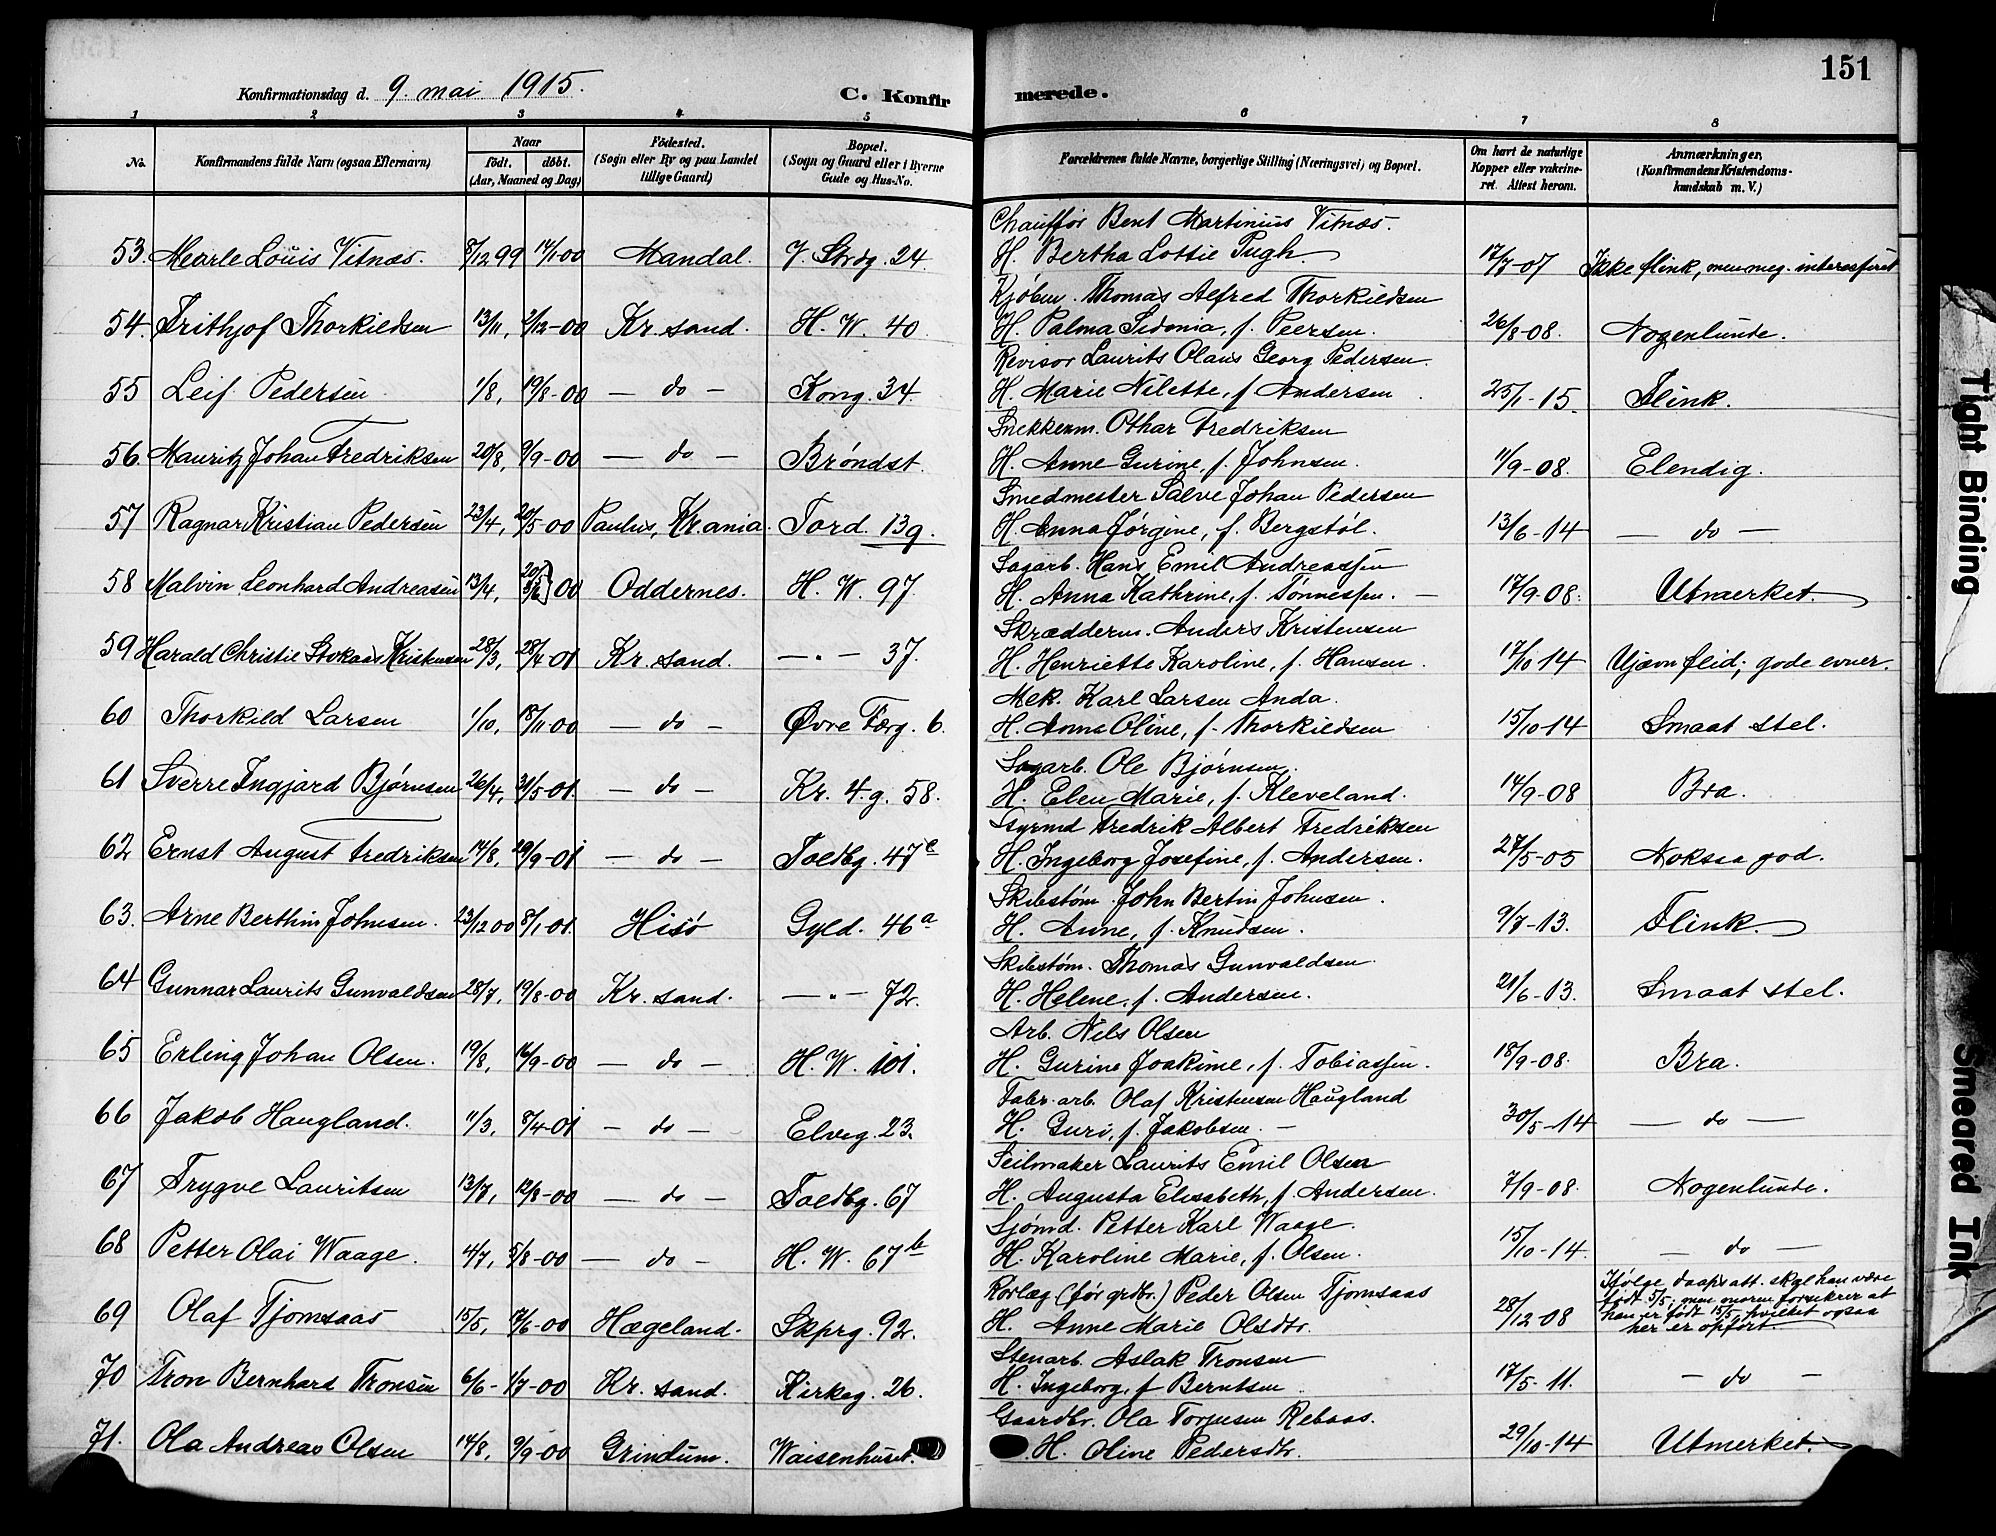 151
Konfirmationsdag d. 9. mai 1915.
C. Konfirmerede.
1 2 3 4 5 6 7 8
No. Konfirmandens fulde Navn (ogsaa Efternavn) Naar født. døbt. (Aar, Maaned og Dag) Fødested. (Sogn eller By og paa Landet tillige Gaard) Bopæl. (Sogn og Gaard eller i Byerne Gade og Hus-No. Forældrenes fulde Navne, borgerlige Stilling (Næringsvei) og Bopæl. Om havt de naturlige Kopper eller vakcineret. Attest herom. Anmærkninger, (Konfirmandens Kristendomskundskab m. V.)
Chauffør Bent Martinius Vitnæs.
53. Mearle Louis Vitnæs. 8/12 99 14/1-00 Mandal. V. Strdg. 24. H. Bertha Lottie Pugh. 17/7-07 Ikke flink, men meg. interessert
Kjøbm. Thomas Alfred Thorkildsen
54. Frithjof Thorkildsen 13/11, 2/12-00 Kr. sand. H. W. 40. H. Palma Sidonia, f. Peersen. 26/8-08. Nogenlunde.
Revisor Laurits Olaus Georg Pedersen.
55 Leif Pedersen 1/8, 19/8-00 — do — Kong. 34. H. Marie Nilette, f. Andersen 25/1-15. Flink.
Snekkerm. Othar Fredriksen
56. Mauritz Johan Fredriksen 20/8, 9/9-00 — do — Brøndst. H. Anne Gurine, f. Johnsen. 11/9-08. Elendig.
Smedmester Salve Johan Pedersen
57 Ragnar Kristian Pedersen 23/4, 20/5-00 Paulus, Kr.ania. Tord. 139. H. Anna Jørgine, f. Bergstøl. 13/6-14 — do —
Sagarb. Hans Emil Andreassen
58 Malvin Leonhard Andreasen 13/4, 20/5 3/6 00 Oddernes. H. W. 97. H. Anna Kathrine, f. Tønnessen. — 17/9-08. Utmærket.
Skrædderm. Anders Kristensen
59 Harald Christie Stokaas Kristensen 28/3, 28/4-01 Kr. sand. — " — 37. H. Henriette Karoline, f. Hansen. 17/10 14 Ujævn flid; gode evner.
Mek. Karl Larsen Anda.
60 Thorkild Larsen 1/10, 18/11-00 — do — Øvre Færg. 6. H. Anna Oline, f. Thorkildsen 15/10-14 Smaat stel.
Sagarb. Ole Bjørnsen.
61 Sverre Ingjard Bjørnsen 26/4, 31/5-01. — do — Kr. 4. g. 58. H. Elen Marie, f. Kleveland. 14/9-08 Bra.
Styrmd Fredrik Albert Fredriksen
62 Ernst August Fredriksen 14/8, 29/9-01 — do — Toldbg. 47c H. Ingeborg Josefine, f. Andersen. 27/5-05 Noksaa god.
Skibstøm. John Bertin Johnsen.
63. Arne Berthin Johnsen. 23/12 00 8/1-01. Hisø Gyld. 46a H. Anne, f. Knudsen. 9/7-13. Flink.
Skibstøm. Thomas Gunvaldsen.
64 Gunnar Laurits Gunvaldsen 28/7, 19/8-00 Kr. sand. — " — 72. H. Helene, f. Andersen. 21/6-13. Smaat stel.
Arb. Nils Olsen
65 Erling Johan Olsen. 19/8, 16/9-00 — do — H. W. 101. H. Gurine Joakime, f. Tobiassen. 18/9-08. Bra.
Fabr. arb. Olaf Kristensen Haugland
66 Jakob Haugland. 11/3, 8/4-01 — do — Elveg. 23. H. Guri, f. Jakobsen. — 30/5-14 — do —
Seilmaker Laurits Emil Olsen
67 Trygve Lauritsen 13/7, 12/8-00 — do — Toldbg. 67 H. Augusta Elisabeth, f. Andersen. 7/9-08. Nogenlunde.
Sjømd. Petter Karl Waage.
68 Petter Olai Waage. 4/7, 5/8-00 — do — H. W. 67b H. Karoline Marie, f. Olsen. 15/10-14. — do —
Rørlæg (før grdbr.) Peder Olsen Tjomsaas Ifølge daapsatt. skal han være
69 Olaf Tjomsaas 15/5, 17/6-00 Hægeland. Skprg. 92. H. Anne Marie Olsdtr. 28/12 08 født 5/5; men moren forsikrer at
han er født 15/5, hvilket ogsaa
her er opført.
Stenarb. Aslak Tronsen
70 Tron Bernhard Tronsen 6/6 - 1/7-00 Kr. sand. Kirkeg. 26. H. Ingeborg, f Berntsen 17/5-11. — do —
Gaardbr. Ola Torjusen Rebaas.
71. Ola Andreas Olsen 14/8, 9/9-00 Grindum. Waisenhuset. H. Oline Pedersdtr. 29/10-14 Utmerket.
Tight Binding
Smeared Ink